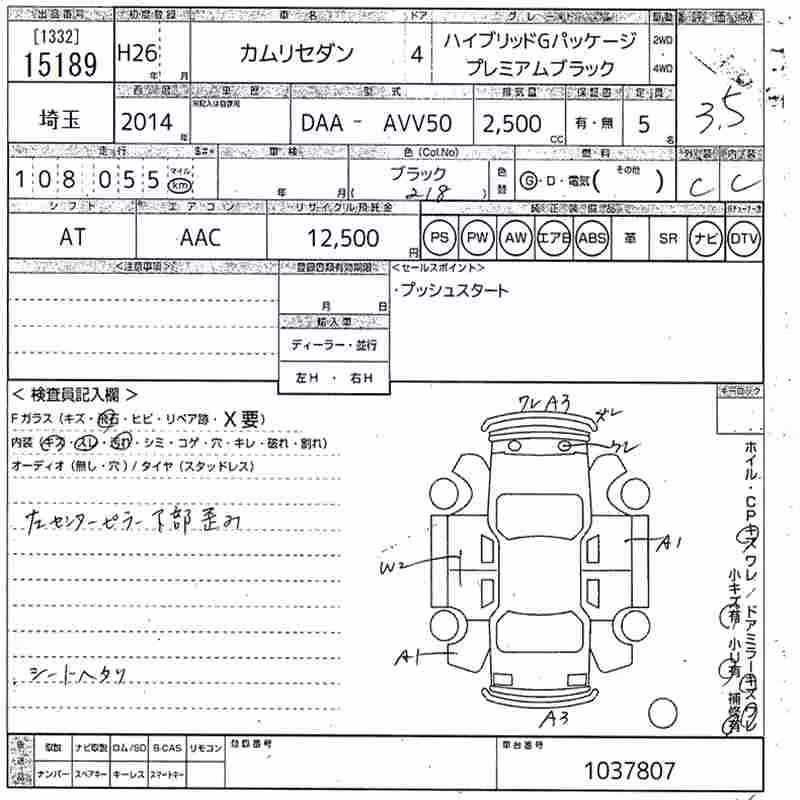 出品番号 初度登録 車名 ドア グレード 駆動 評価点
[1332] 15189 H26 年 月 カムリセダン 4 ハイブリッドGパッケージ 2WD
プレミアムブラック 4WD
西暦 車歴 型式 排気量 保証書 定員
埼玉 2014 年 未記入は自家用 DAA - AVV50 2,500 CC 有・無 5 名 3.5
走行 車検 色(Col.No) 燃料 外装 内装
108055 マイル km 年 月 ブラック 218 色替 G・D・電気( その他 ) C C
シフト エアコン リサイクル預託金 純正装備品
AT AAC 12,500 円 PS PW AW エアB ABS 革 SR ナビ DTV
<注意事項> 登録書類有効期限 <セールスポイント>
月 日 ・プッシュスタート
輸入車
ディーラー・並行
左H ・ 右H
< 検査員記入欄 >
Fガラス (キズ・飛石・ヒビ・リペア跡・X要)
内装 (キズ・スレ・汚れ・シミ・コゲ・穴・キレ・破れ・割れ)
オーディオ (無し・穴) / タイヤ (スタッドレス)
左センターピラー下部歪み
シートヘタリ
ワレ A3
ズレ
ワレ
A1
W2
A1
A3
キーロック
ホイル・CPキズワレ / ドアミラーキズワレ
小キズ有 / 小U有 補修有
後送品 取説 ナビ取説 ロム/SD B-CAS リモコン 登録番号 車台番号
ナンバー スペアキー キーレス スマートキー 1037807